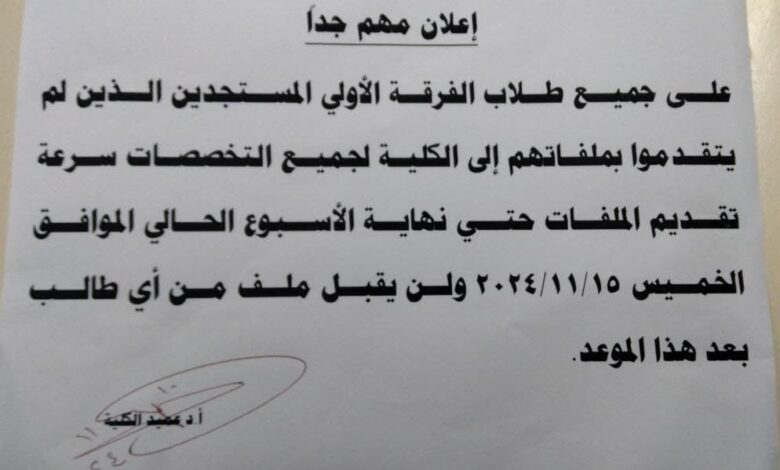 إعلان مهم جداً
على جميع طلاب الفرقة الأولي المستجدين الذين لم
يتقدموا بملفاتهم إلى الكلية لجميع التخصصات سرعة
تقديم الملفات حتي نهاية الأسبوع الحالي الموافق
الخميس ٢٠٢٤/١١/١٥ ولن يقبل ملف من أي طالب
بعد هذا الموعد.
أ د عميد الكلية